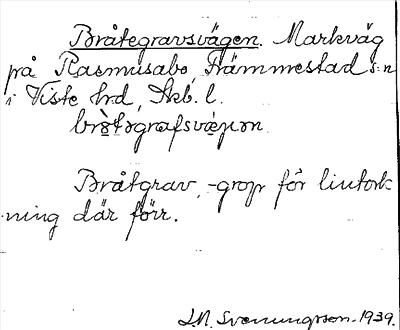 Bråtegravsvägen. Markväg
på Rasmusabo, Främmestad s:n
i Viste hrd, Skb. l.
Bråtgrav, -grop för lintork-
ning där förr.
S.N. Svenungsson. 1939.